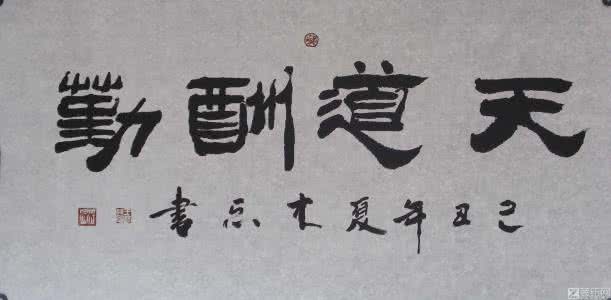 天道酬勤
己丑年夏木忘书